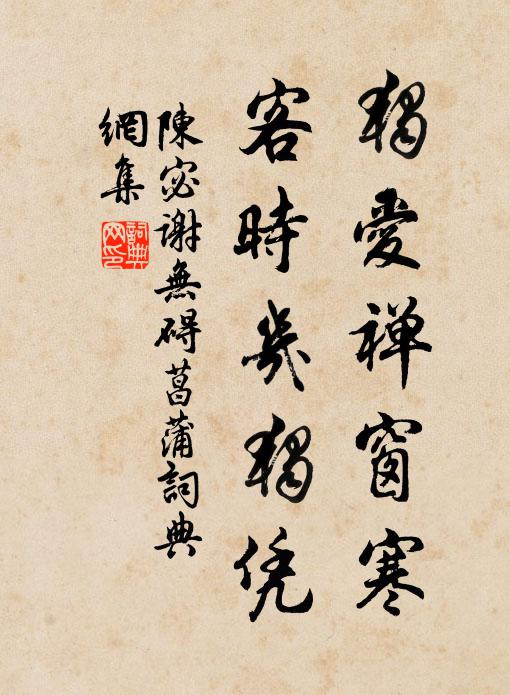 獨愛禅窗寒
客時幾獨凭
陳宓謝無碍菖蒲詞典
網集
詞典
网印